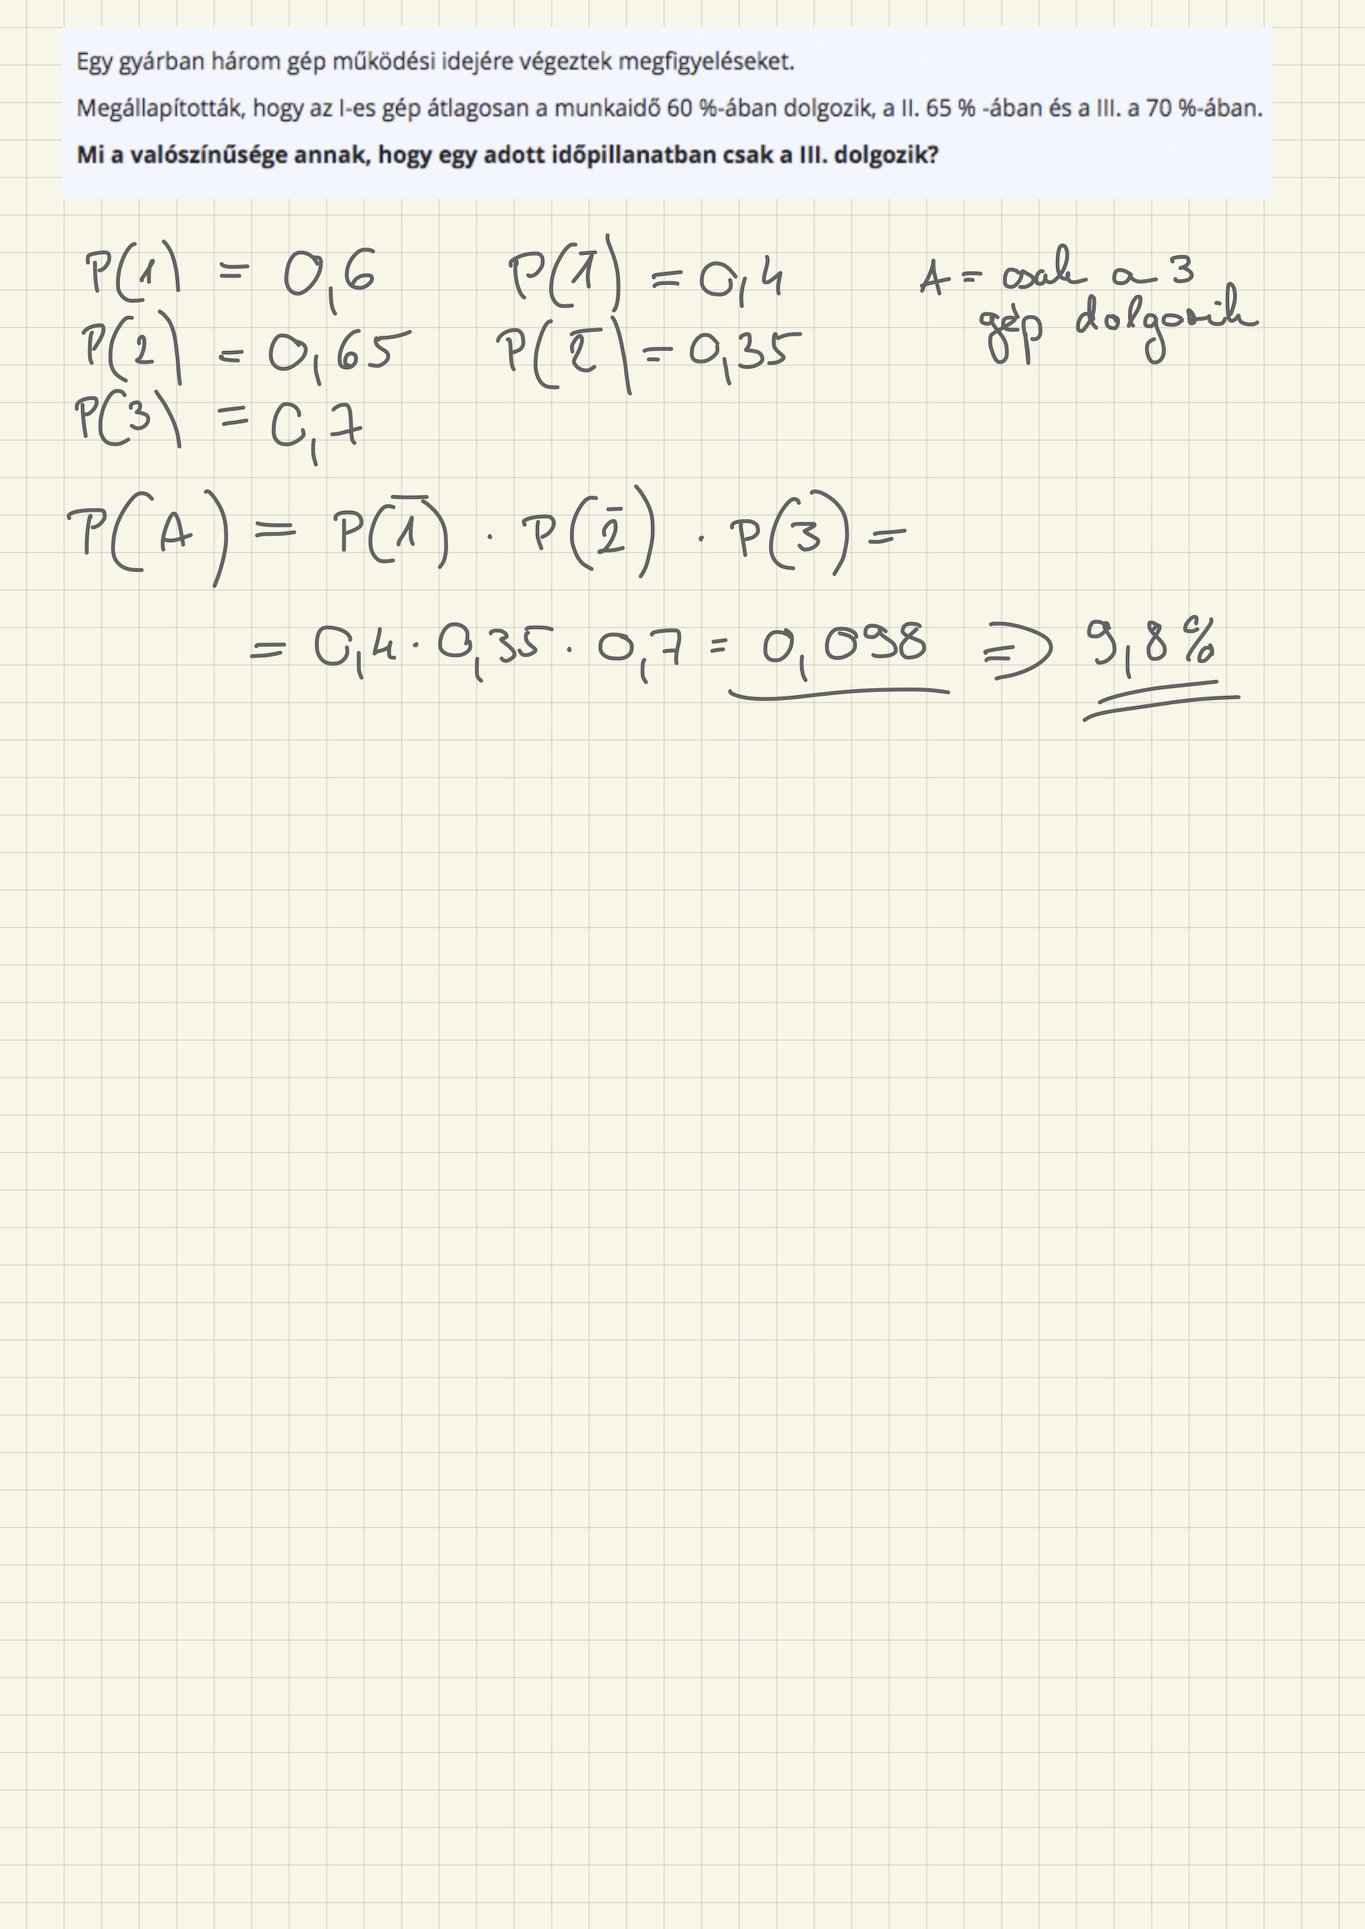 Egy gyárban három gép működési idejére végeztek megfigyeléseket.
Megállapították, hogy az I-es gép átlagosan a munkaidő 60 %-ában dolgozik, a II. 65 % -ában és a III. a 70 %-ában.
Mi a valószínűsége annak, hogy egy adott időpillanatban csak a III. dolgozik?
P(1) = 0,6 P(1̅) = 0,4 A = csak a 3
gép dolgozik
P(2) = 0,65 P(2̅) = 0,35
P(3) = 0,7
P(A) = P(1̅) · P(2̅) · P(3) =
= 0,4 · 0,35 · 0,7 = 0,098 ⇒ 9,8%